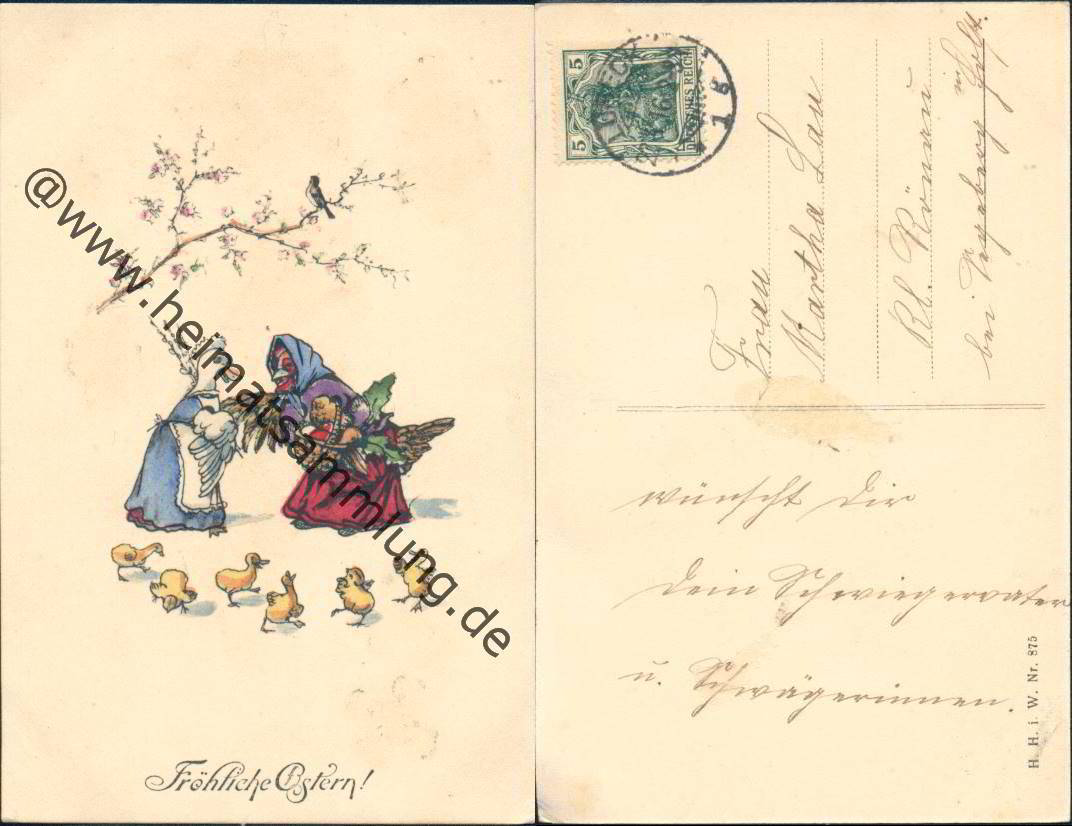 @www.heimatsammlung.de
Fröhliche Ostern!
5 5
DEUTSCHES REICH
1 5
Frau
Martha Lau
Kl. Rönnau
bei Segeberg
Holst.
wünscht Dir
Dein Schwiegervater
u. Schwägerinnen.
H. H. i. W. Nr. 875